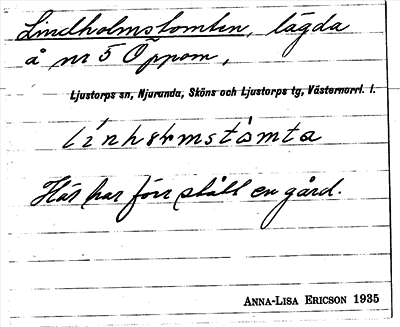 Lindholmstomten, lägda
å nr 5 Oppom,
Ljustorps sn, Njurunda, Sköns och Ljustorps tg, Västernorrl. l.
Här har förr stått en gård.
ANNA-LISA ERICSON 1935